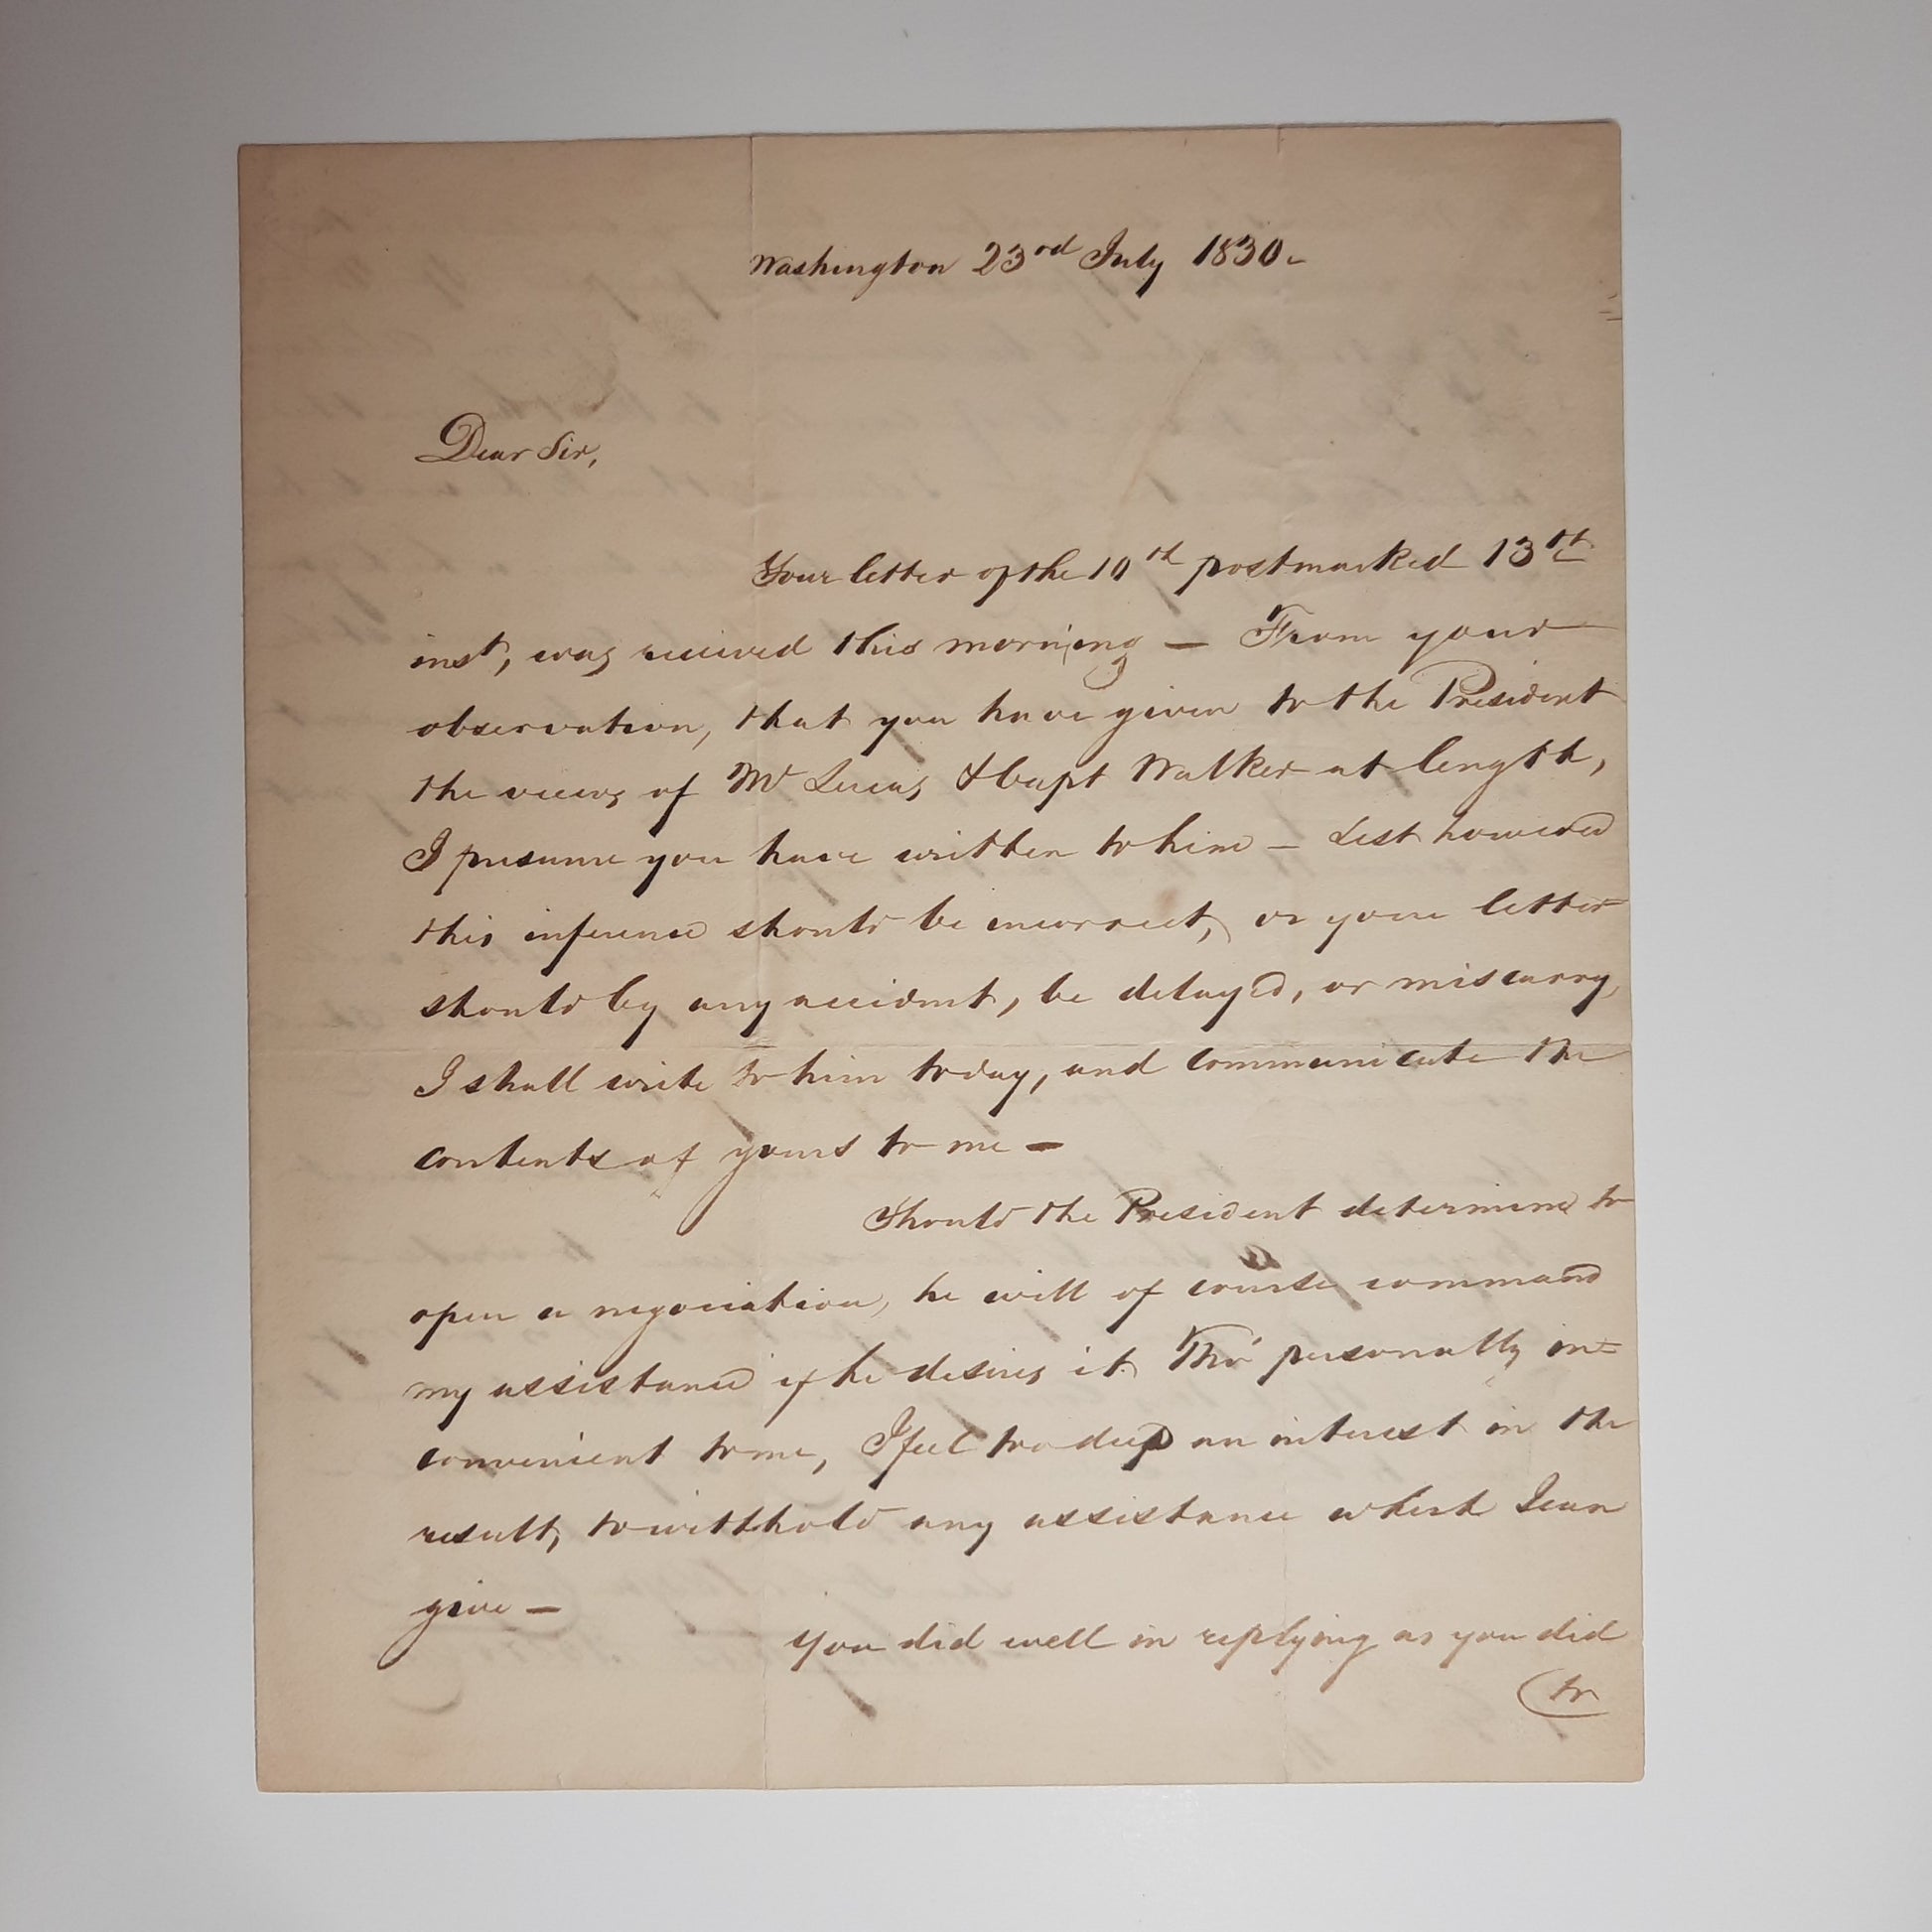 Washington 23rd July 1830-
Dear Sir,
Your letter of the 10th postmarked 13th
inst, was received this morning — From your
observation, that you have given to the President
the views of Mr Lucas & Capt Walker at length,
I presume you have written to him — Lest however
this inference should be incorrect, or your letter
should by any accident, be delayed, or miscarry,
I shall write to him today, and communicate the
contents of yours to me —
Should the President determine to
open a negociation, he will of course command
my assistance if he desires it. Tho' personally in=
convenient to me, I feel too deep an interest in the
result, to withhold any assistance which I can
give —
You did well in replying as you did
to